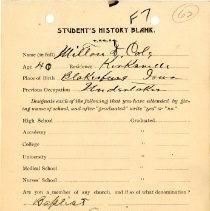 F7
62
STUDENT'S HISTORY BLANK.
Name (in full) Milton D. Cole
Age 40 Residence Kirksville
Place of Birth Blakesburg Iowa
Previous Occupation Undertaker
Designate each of the following that you have attended by giving name of school, and after "graduated" write "yes" or "no."
High School Graduated
Academy "
College "
University "
Medical School "
Nurses' School "
Are you a member of any church, and if so, of what denomination?
Baptist